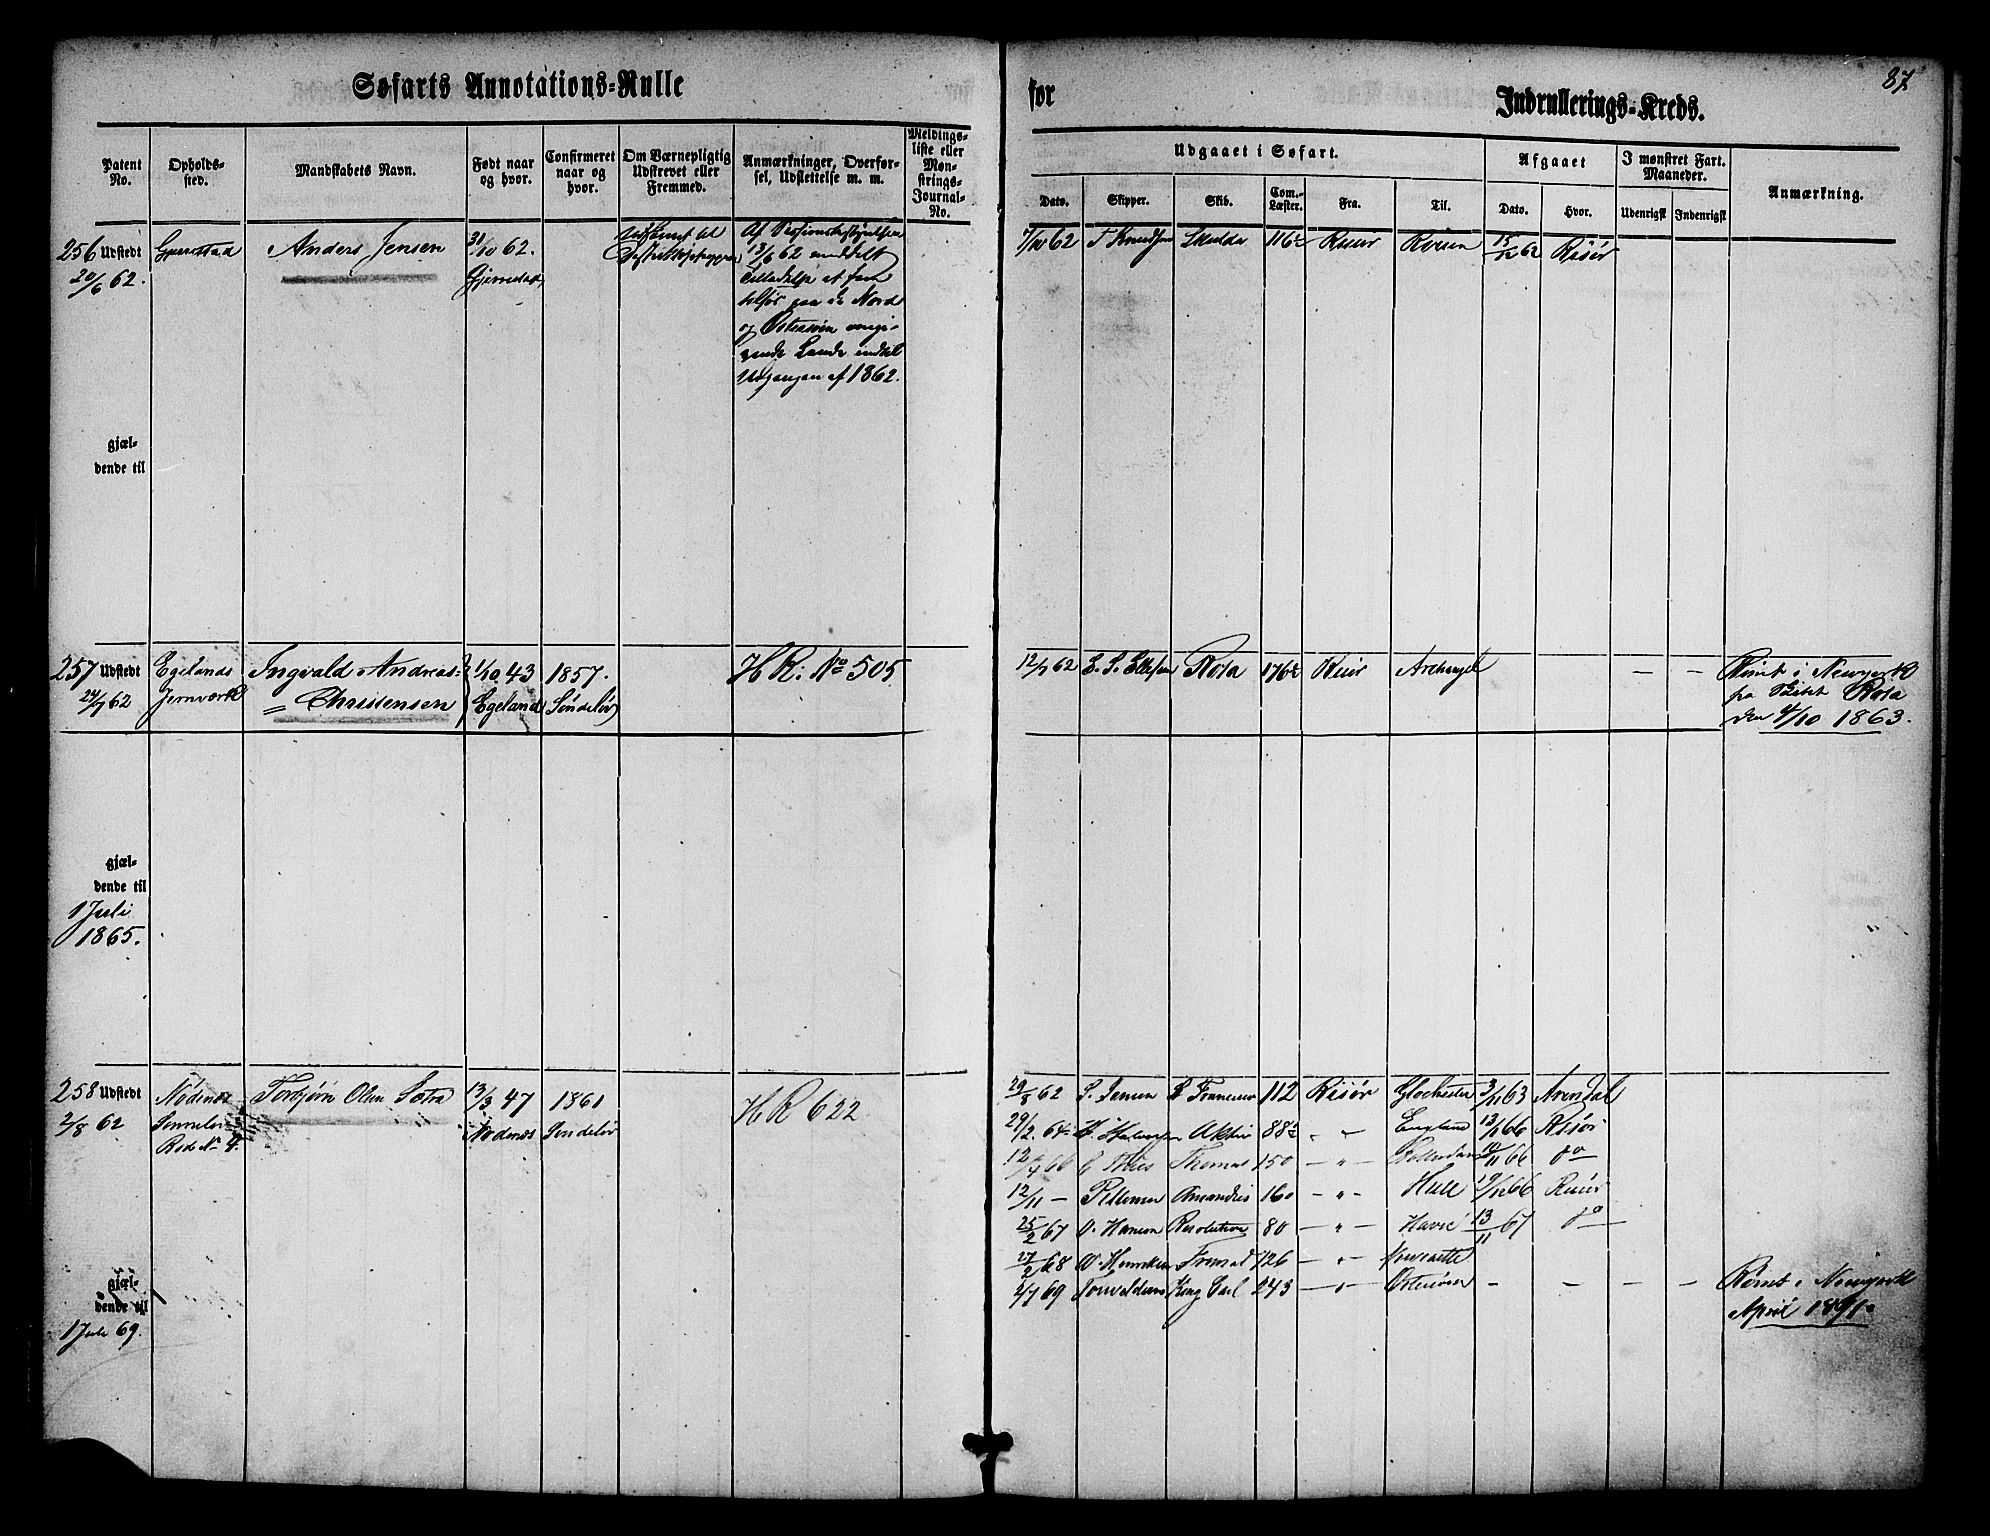 Søfarts Annotations-Rulle
for
Indrullerings-Kreds.
87
Patent No.
Opholds-sted.
Mandskabets Navn.
Født naar og hvor.
Confirmeret naar og hvor.
Om Værnepligtig Udskrevet eller Fremmed.
Anmærkninger, Overfør-sel, Udslettelse m. m.
Meldings-liste eller Møn-strings-Journal-No.
Udgaaet i Søfart.
Dato.
Skipper.
Skib.
Com. Læster.
Fra.
Til.
Afgaaet
Dato.
Hvor.
I mønstret Fart. Maaneder.
Udenrigsk
Indenrigsk
Anmærkning.
256 Udstedt
20/6 62.
Gjerrestad
Anders Jensen
31/10 62.
Gjerrestad
Af Sessionsbestyrelsen
13/6 62 meddelt
Tilladelse at fare
tilsøs paa de Nord
og Østersøen omgi-
vende Lande indtil
Udgangen af 1862.
gjæl-
dende til
7/10 62 T Knudsen Skulda 116½ Risør Rouen 15/12 62 Risør
257 Udstedt
24/7 62
Egelands
Jernværk
Ingvald Andreas =
= Christensen
1/10 43
Egeland
1857.
Søndeløv
H R: No 505
12/7 62 E. S. Ellefsen Rosa 176½ Risør Archangel – –
Rømt i Newyork
fra Skibet Rosa
den 4/10 1863.
gjæl-
dende til
1 Juli
1865.
258 Udstedt
2/8 62
Nødenes
Søndeløv
Rode No 4.
Torbjørn Olsen Sætra
13/3 47
Nødenes
1861
Søndeløv
H R 622
29/8 62 S. Jensen 112 Risør Glochester 3/11 63 Arendal
29/2 64 H. Halvorsen Aktiv 88½ – " – England 13/11 66 Risør
12/4 66 Thomas 150 – " – 10/11 66 do
12/11 – Pettersen Amandus 160 – " – Hull 19/12 66 Risør
25/2 67 O. Hansen Resolution 80 – " – Havre 13/11 67 do
27/2 68 O. Henriksen 126 – " – Newcastle
2/7 69 Torvaldsen Kong Carl 243 – " – Østersøen – – – –
Rømt i Newyork
April 1871.
gjæl-
dende til
1 Juli 69.